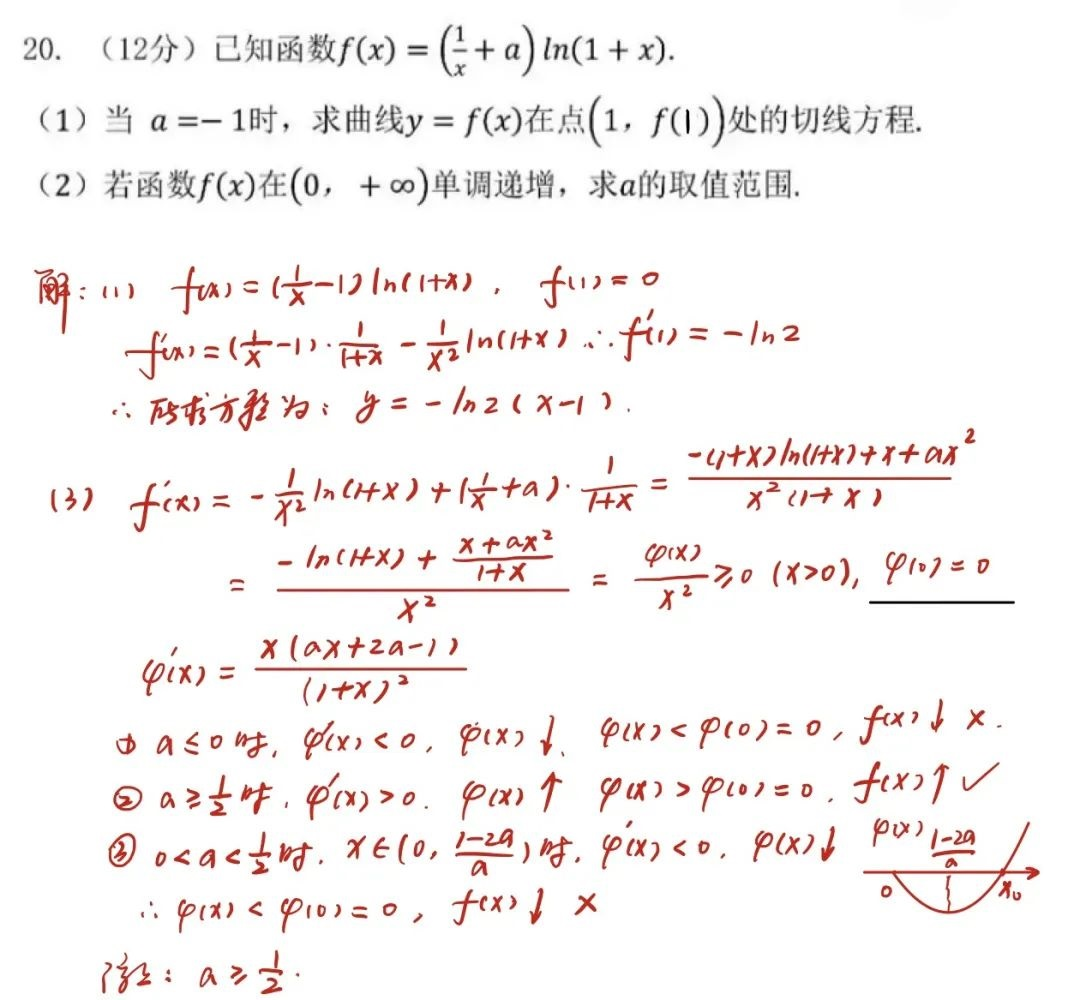 20. （12分）已知函数f(x) = (1/x + a) ln(1 + x).
（1）当 a =− 1时，求曲线y = f(x)在点(1，f(1))处的切线方程.
（2）若函数f(x)在(0，+∞)单调递增，求a的取值范围.
解：(1) f(x) = (1/x − 1) ln(1+x), f(1) = 0
f′(x) = (1/x − 1)·1/(1+x) − 1/x² ln(1+x) ∴ f′(1) = −ln2
∴ 所求方程为：y = −ln2(x−1).
(3) f′(x) = −1/x² ln(1+x) + (1/x + a)·1/(1+x) = (−(1+x)ln(1+x)+x+ax²)/(x²(1+x))
= (−ln(1+x) + (x+ax²)/(1+x))/x² = φ(x)/x² ≥ 0 (x>0), φ(0) = 0
φ′(x) = x(ax+2a−1)/(1+x)²
① a ≤ 0 时, φ′(x) < 0, φ(x)↓, φ(x) < φ(0) = 0, f(x)↓ ×.
② a ≥ 1/2 时, φ′(x) > 0. φ(x)↑ φ(x) > φ(0) = 0. f(x)↑ ✓
③ 0 < a < 1/2 时, x∈(0, (1−2a)/a) 时, φ′(x) < 0. φ(x)↓ φ(x) (1−2a)/a
0 x₀
∴ φ(x) < φ(0) = 0, f(x)↓ ×
综上：a ≥ 1/2.